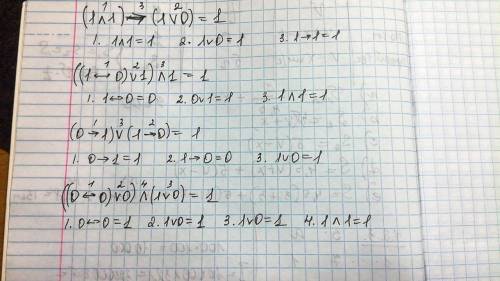 (1 ∧ 1) → (1 ∨ 0) = 1
1. 1∧1 = 1 2. 1∨0 = 1 3. 1→1 = 1
((1 ↔ 0) ∨ 1) ∧ 1 = 1
1. 1↔0 = 0 2. 0∨1 = 1 3. 1∧1 = 1
(0 → 1) ∨ (1 → 0) = 1
1. 0→1 = 1 2. 1→0 = 0 3. 1∨0 = 1
((0 ↔ 0) ∨ 0) ∧ (1 ∨ 0) = 1
1. 0↔0 = 1 2. 1∨0 = 1 3. 1∨0 = 1 4. 1∧1 = 1